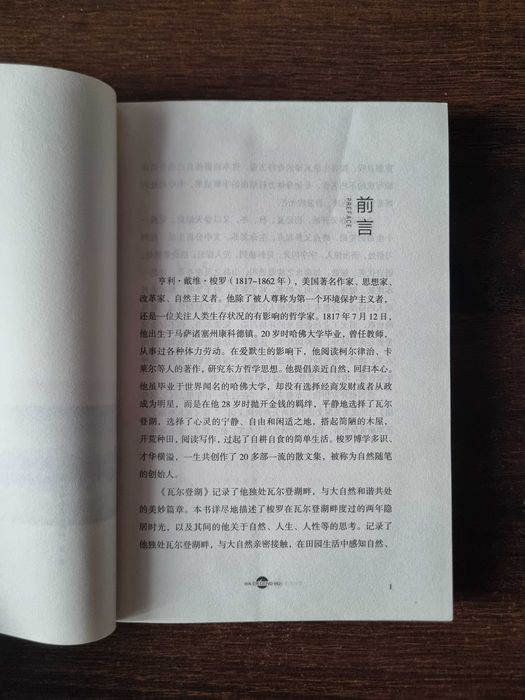 前言
PREFACE
亨利·戴维·梭罗（1817~1862 年），美国著名作家、思想家、
改革家、自然主义者。他除了被人尊称为第一个环境保护主义者，
还是一位关注人类生存状况的有影响的哲学家。1817 年 7 月 12 日，
他出生于马萨诸塞州康科德镇。20 岁时哈佛大学毕业，曾任教师，
从事过各种体力劳动。在爱默生的影响下，他阅读柯尔律治、卡
莱尔等人的著作，研究东方哲学思想。他提倡亲近自然，回归本心。
他虽毕业于世界闻名的哈佛大学，却没有选择经商发财或者从政
成为明星，而是在他 28 岁时抛开金钱的羁绊，平静地选择了瓦尔
登湖，选择了心灵的宁静、自由和闲适之地，搭起简陋的木屋，
开荒种田，阅读写作，过起了自耕自食的简单生活。梭罗博学多识、
才华横溢，一生共创作了 20 多部一流的散文集，被称为自然随笔
的创始人。
《瓦尔登湖》记录了他独处瓦尔登湖畔，与大自然和谐共处
的美妙篇章。本书详尽地描述了梭罗在瓦尔登湖畔度过的两年隐
居时光，以及其间的他关于自然、人生、人性等的思考。记录了
他独处瓦尔登湖畔，与大自然亲密接触，在田园生活中感知自然、
1